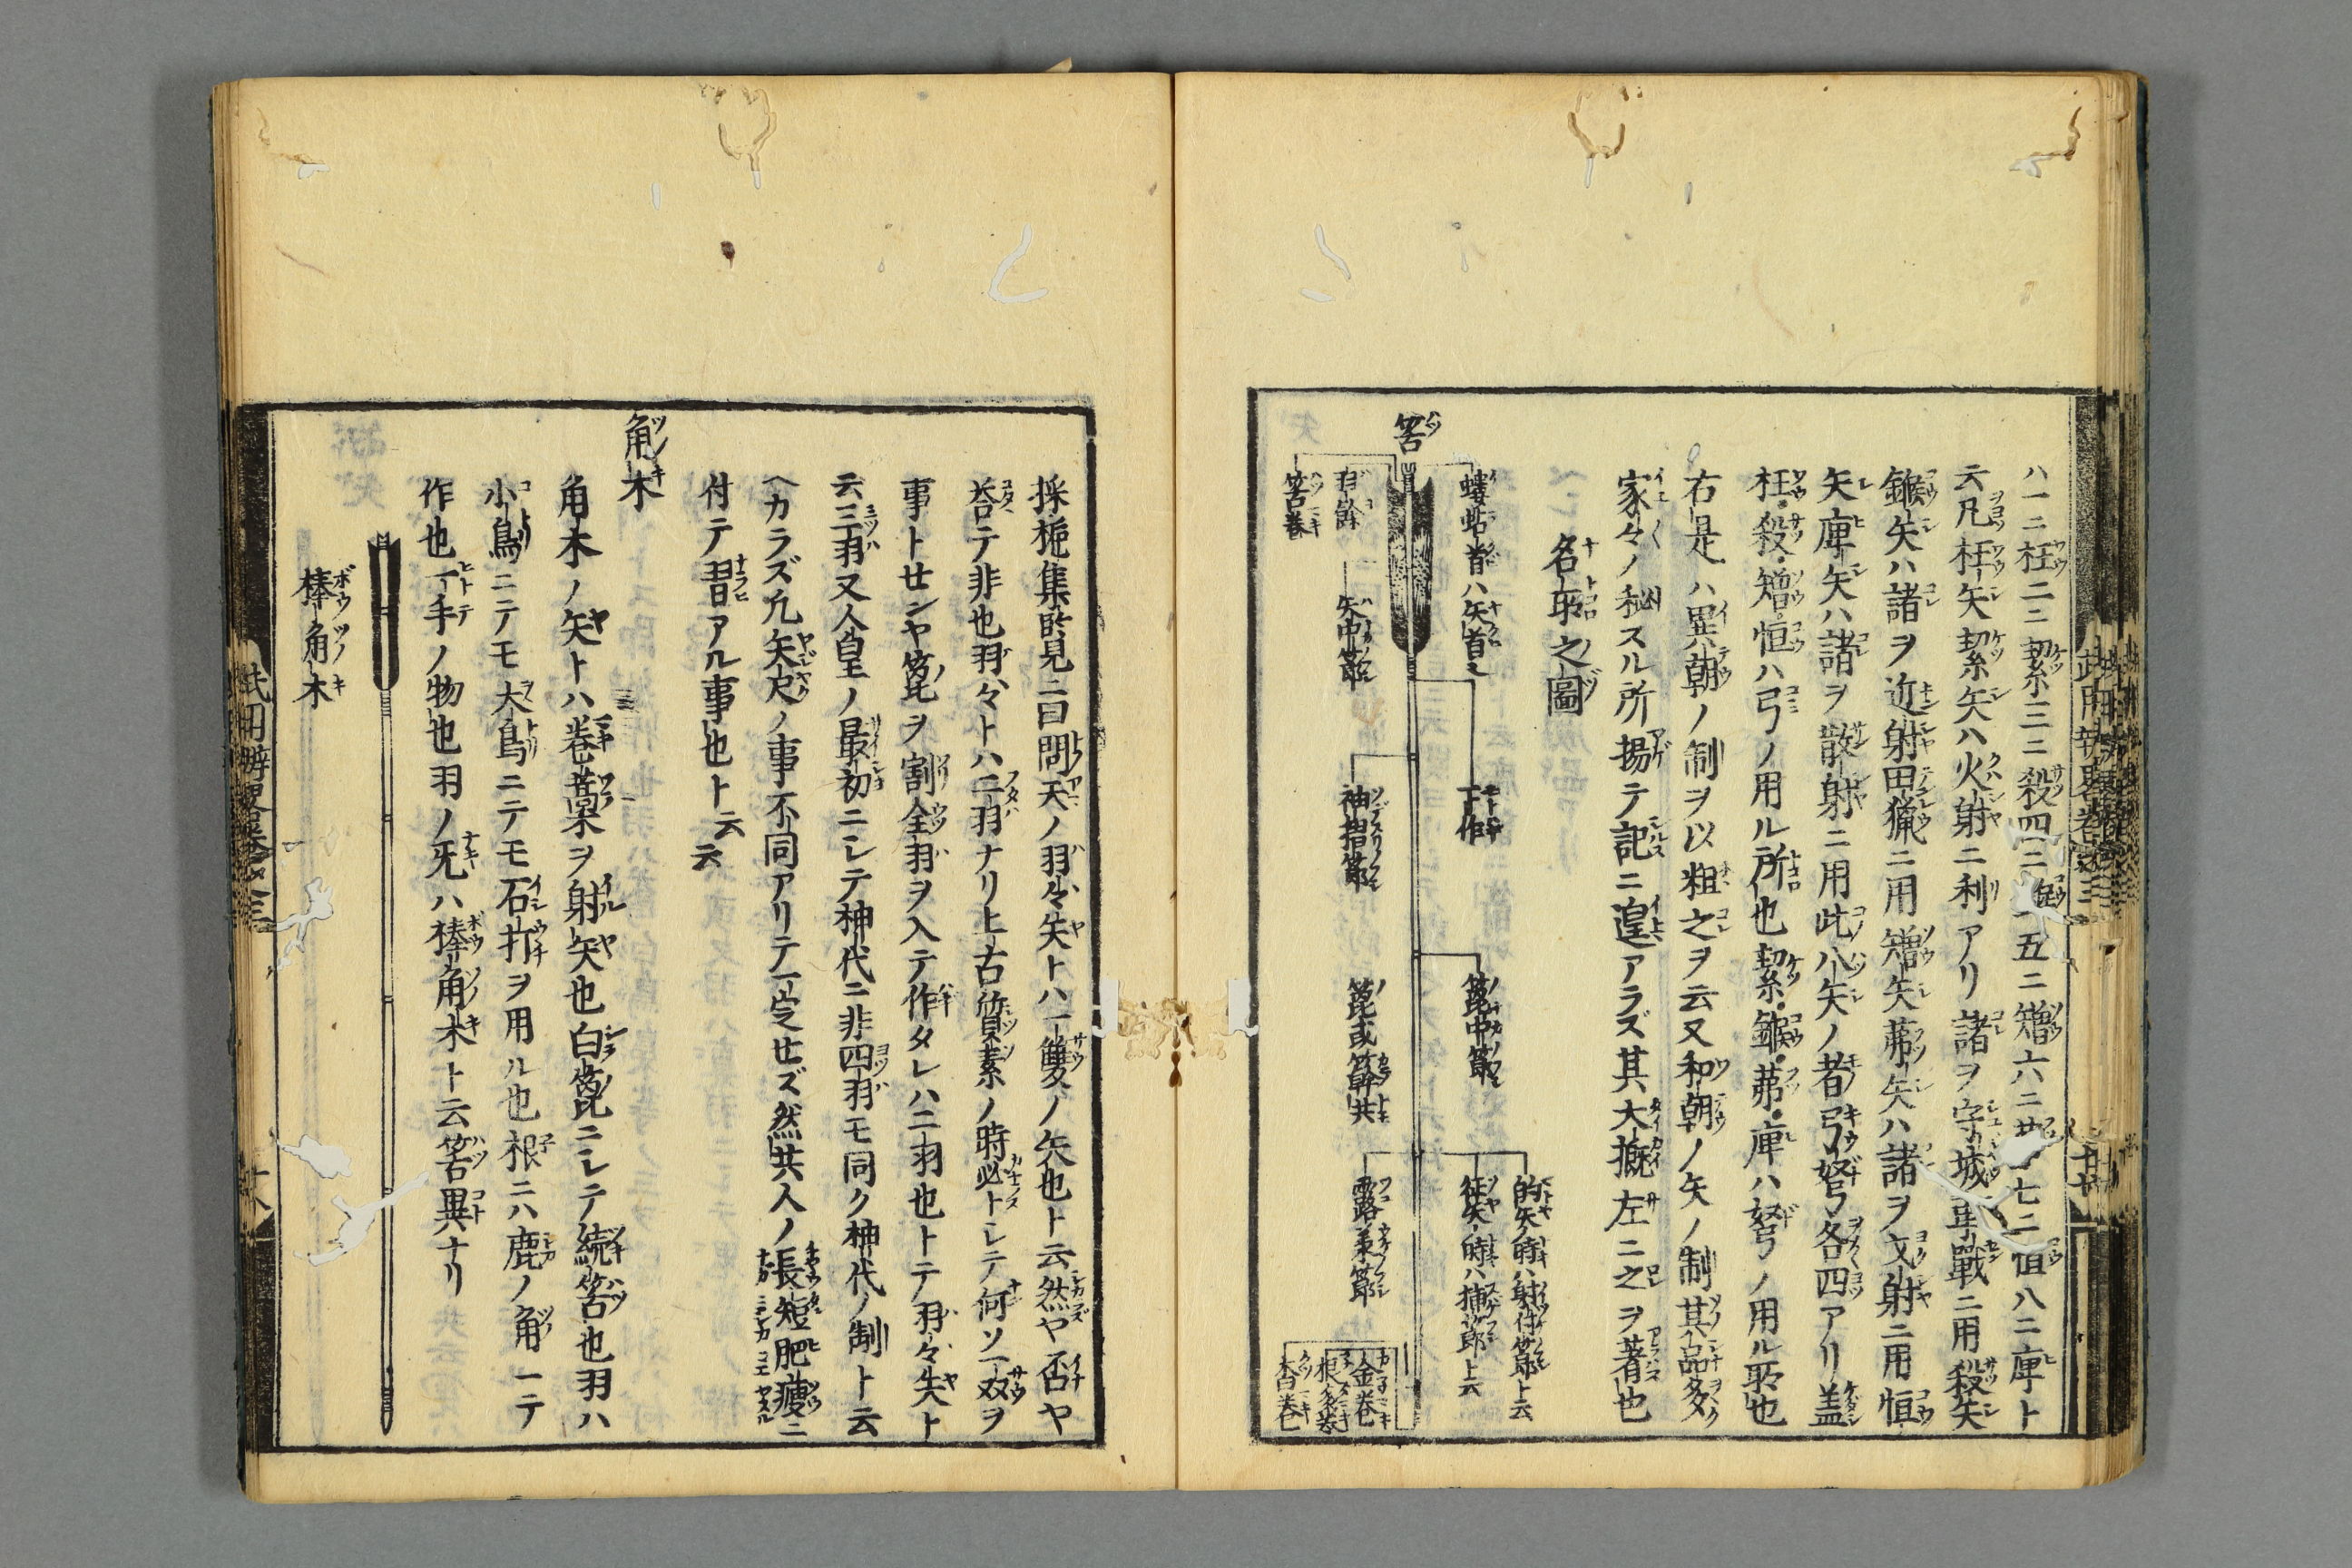 ハ一ニ枉二ニ絜三ニ殺四ニ鍭五ニ矰六ニ茀七ニ恒八ニ庳ト
云凡枉矢絜矢ハ火射ニ利アリ諸ヲ守城車戰ニ用殺矢
鍭矢ハ諸ヲ近射田獵ニ用矰矢茀矢ハ諸ヲ弋射ニ用恒
矢庳矢ハ諸ヲ散射ニ用此八矢ノ者弓弩各四アリ盖
枉・殺・矰・恒ハ弓ノ用ル所也絜・鍭・茀・庳ハ弩ノ用ル所也
右是ハ異朝ノ制ヲ以粗之ヲ云又和朝ノ矢ノ制其品多ク
家々ノ秘スル所揚テ記ニ遑アラズ其大概左ニ之ヲ著也
名所之圖
筈
螻蛄首ハ矢首ニ
下作
箆中節
的矢ノ時ハ射付節ト云
征矢ノ時ハ捕節ト云
矢中節
袖摺節
箆或簳共
露兼節
筈巻
金巻
根多巻
沓巻
採蓰集所見ニ曰問天ノ羽々矢トハ一雙ノ矢也ト云然ヤ否ヤ
荅テ非也羽々トハ二羽ナリ上古質素ノ時必トシテ何ソ一双ヲ
事トセンヤ箆ヲ割全羽ヲ入テ作タレハ二羽也トテ羽々矢ト
云三羽又人皇ノ最初ニシテ神代ニ非四羽モ同ク神代ノ制ト云
ヘカラズ凢矢尺ノ事不同アリテ一定セズ然共人ノ長短肥痩ニ
付テ習アル事也ト云云
角木
角木ノ矢トハ卷藁ヲ射矢也白箆ニシテ続筈也羽ハ
小鳥ニテモ大鳥ニテモ石打ヲ用ル也根ニハ鹿ノ角一テ
作也一手ノ物也羽ノ旡ハ棒角木ト云筈異ナリ
棒角木
十八